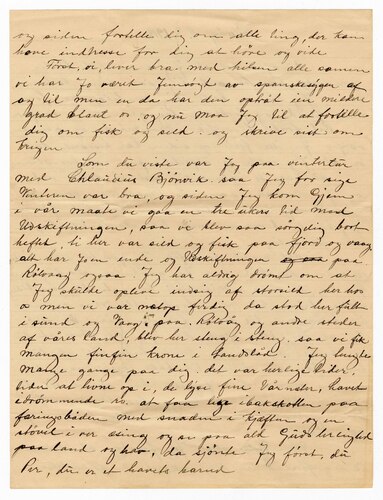 og siden fortelle dig om alle ting, der kan
have indtresse for dig at höre og vide
Först, vi, lever bra med hilsen alle sammen
vi har Jo været av spanskesygen af
og til men en da har den optrat i en mildre
grad blant os. og nu maa Jeg til at fortelle
dig om fisk og sild. og skrive sist om
krigen
Som du viste var Jeg paa vintertur
med Claudius Björvik saa Jeg for sige
Vinteren var bra, og siden Jeg kom Hjem
i vår maatte vi gaa en tre ukers tid med
Udskiftningen, saa vi blev saa sörgelig bort
heftet, ti her var sild og fisk paa fjord og vaag
alt har Jo en ende og Udskiftningen paa
Rotvaag ogsaa Jeg har aldrig drömt om at
Jeg skulde opleve indsig af storsild her hos
os men vi var netop ferdig, da stod her fuldt
i sund og Vaag. paa Rotvåg og andre steder
af vores land, blev her steng i steng. saa vi fik
mangen finfin krone i Landslod. Jeg
mange gange paa dig, det var herlige tider
i de lyse fine Vårnetter, havet
drömmende ro. at fare i bakskotten paa
færingsbåden med snadden i kjæften og en
stövel i ver og se paa alt Guds herlighed
paa land og hav, da skjönte Jeg först, du
Per, du er et havets barn